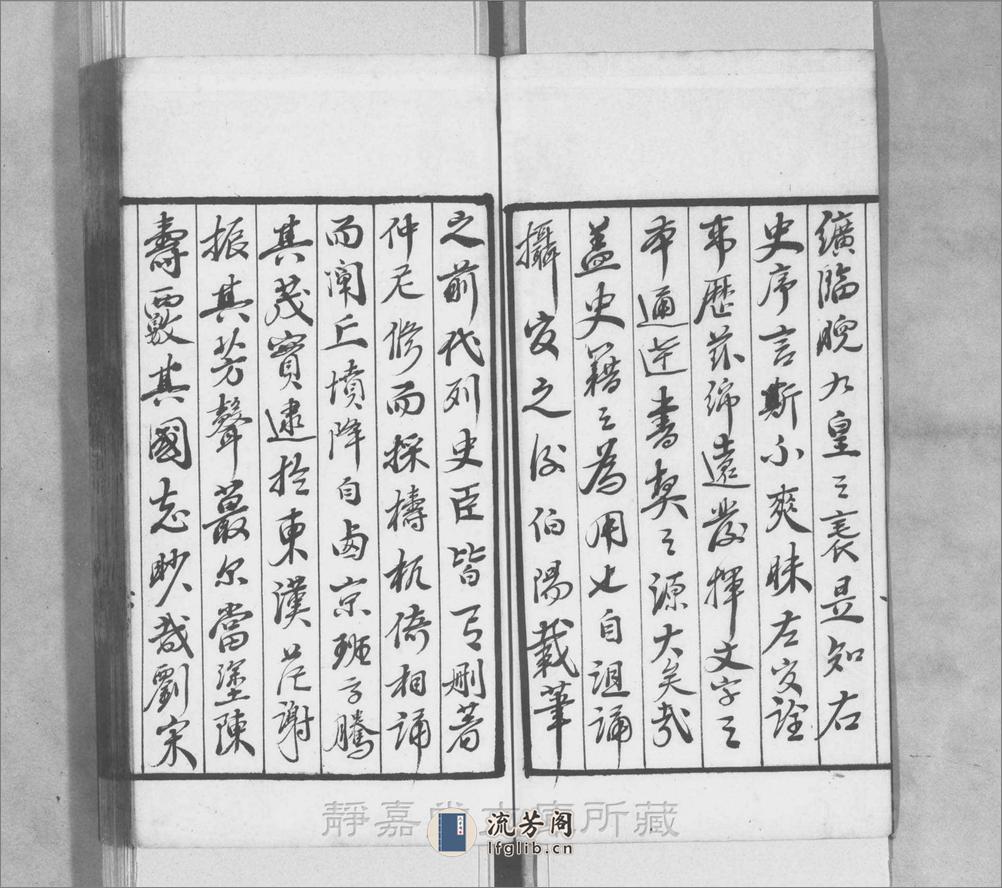 纊臨睨九皇之表是知右
史序言斯不爽昧左官詮
事歷茲綿遠發揮文字之
本通達書契之源大矣哉
蓋史籍之為用也自詛誦
攝官之後伯陽載筆
之前代列史臣皆有刪著
仲尼修而採檮杌倚相誦
而闡丘墳降自西京班馬騰
其茂實逮於東漢范謝
振其芳聲蕞尔當塗陳
壽覈其國志眇哉劉宋
靜嘉堂文庫所藏
流芳阁
lfglib.cn